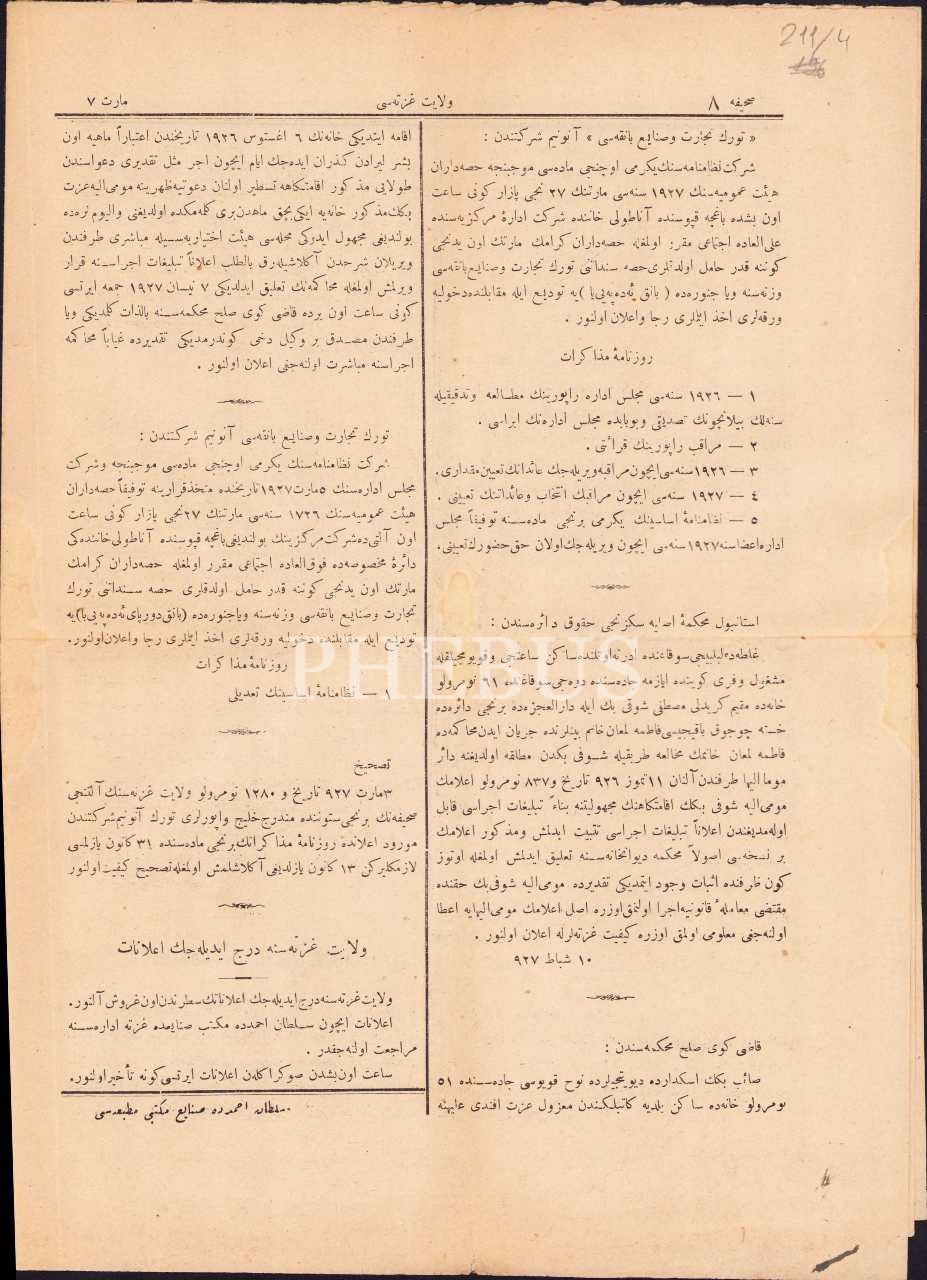 211/4
صحيفه ٨
ولايت غزته‌سى
مارت ٧
« تورك تجارت وصنايع بانقه‌سى » آنونيم شركتندن :
شركت نظامنامه‌سنك يكرمى اوچنجى ماده‌سى موجبنجه حصه‌داران
هيئت عموميه‌سنك ١٩٢٧ سنه‌سى مارتنك ٢٧ نجى پازار كونى ساعت
اون بشده باغچه قپوسنده آناطولى خاننده شركت ادارهٔ مركزيه‌سنده
على‌العاده اجتماعى مقرر اولمغله حصه‌داران كرامك مارتك اون يدنجى
كوننه قدر حامل اولدقلرى حصه سنداتنى تورك تجارت وصنايع بانقه‌سى
وزنه‌سنه ويا جنوره‌ده ( بانق ئه‌ده‌په‌نى‌يا ) يه توديع ايله مقابلنده دخوليه
ورقه‌لرى اخذ ايتملرى رجا واعلان اولنور .
روزنامهٔ مذاكرات
١ — ١٩٢٦ سنه‌سى مجلس اداره راپورينك مطالعه وتدقيقيله
سنه‌لك بيلانچونك تصديق وبوبابده مجلس اداره‌نك ابراسى .
٢ — مراقب راپورينك قرائتى .
٣ — ١٩٢٦ سنه‌سى ايچون مراقبه ويريله‌جك عائداتك تعيين مقدارى .
٤ — ١٩٢٧ سنه‌سى ايچون مراقبك انتخاب وعائداتنك تعيينى .
٥ — نظامنامهٔ اساسينك يكرمى برنجى ماده‌سنه توفيقاً مجلس
اداره اعضاسنه ١٩٢٧ سنه‌سى ايچون ويريله‌جك اولان حق حضورك تعيينى .
استانبول محكمهٔ اصليه سكزنجى حقوق دائره‌سندن :
غلطه‌ده لبلبيجى سوقاغنده ادرنه اوتلنده ساكن ساعتجى وقويومجيلقله
مشغول وفرى كوينده ايازمه جاده‌سنده دوه‌جى سوقاغنده ٦١ نومرولو
خانه‌ده مقيم كريدلى مصطفى شوقى بك ايله دارالعجزه‌ده برنجى دائره‌ده
خسته چوجوق باقيجيسى فاطمه لمعان خانم بينلرنده جريان ايدن محاكمه‌ده
فاطمه لمعان خانمك مخالعه طريقيله شوقى بكدن مطلقه اولديغنه دائر
مومااليها طرفندن آلنان ١١ تموز ٩٢٦ تاريخ و٨٣٧ نومرولو اعلامك
مومى‌اليه شوقى بكك اقامتكاهنك مجهوليتنه بناءً تبليغات اجراسى قابل
اوله‌مديغندن اعلاناً تبليغات اجراسى تثبيت ايدلمش ومذكور اعلامك
بر نسخه‌سى اصولاً محكمه ديوانخانه‌سنه تعليق ايدلمش اولمغله اوتوز
كون ظرفنده اثبات وجود ايتمديكى تقديرده مومى‌اليه شوقى بك حقنده
مقتضى معاملهٔ قانونيه اجرا اولنمق اوزره اصل اعلامك مومى‌اليهايه اعطا
اولنه‌جغى معلومى اولمق اوزره كيفيت غزته‌لرله اعلان اولنور .
١٠ شباط ٩٢٧
قاضى كوى صلح محكمه‌سندن :
صائب بكك اسكدارده ديوتجيلرده نوح قويوسى جاده‌سنده ٥١
نومرولو خانه‌ده ساكن بلديه كاتبلكندن معزول عزت افندى عليهنه
اقامه ايتديكى خانه‌نك ٦ اغستوس ١٩٢٦ تاريخندن اعتباراً ماهيه اون
بشر ليرادن كذران ايده‌جك ايام ايچون اجر مثل تقديرى دعواسندن
طولايى مذكور اقامتكاهه تسطير اولنان دعوتيه ظهرينه مومى‌اليه عزت
بكك مذكور خانه‌يه ايكى بچق ماهدن‌برى كلمه‌مكده اولديغنى واليوم نره‌ده
بولنديغى مجهول ايدوكى محله‌سى هيئت اختياريه‌سيله مباشرى طرفندن
ويريلان شرحدن آكلاشيله‌رق بالطلب اعلاناً تبليغات اجراسنه قرار
ويرلمش اولمغله محاكمه‌نك تعليق ايدلديكى ٧ نيسان ١٩٢٧ جمعه ايرتسى
كونى ساعت اون برده قاضى كوى صلح محكمه‌سنه بالذات كلمديكى ويا
طرفندن مصدق بر وكيل دخى كوندرمديكى تقديرده غياباً محاكمه
اجراسنه مباشرت اولنه‌جغى اعلان اولنور .
تورك تجارت وصنايع بانقه‌سى آنونيم شركتندن :
شركت نظامنامه‌سنك يكرمى اوچنجى ماده‌سى موجبنجه وشركت
مجلس اداره‌سنك ٥ مارت ١٩٢٧ تاريخنده متخذ قرارينه توفيقاً حصه‌داران
هيئت عموميه‌سنك ١٧٢٦ سنه‌سى مارتنك ٢٧ نجى پازار كونى ساعت
اون آلتى ده شركت مركزينك بولنديغى باغچه قپوسنده آناطولى خاننده‌كى
دائرهٔ مخصوصه‌ده فوق‌العاده اجتماعى مقرر اولمغله حصه‌داران كرامك
مارتك اون يدنجى كوننه قدر حامل اولدقلرى حصه سنداتنى تورك
تجارت وصنايع بانقه‌سى وزنه‌سنه وياجنوره‌ده (بانق دورپاى ئه‌ده‌په‌نى‌يا) يه
توديع ايله مقابلنده دخوليه ورقه‌لرى اخذ ايتملرى رجا واعلان اولنور.
روزنامهٔ مذاكرات
١ — نظامنامهٔ اساسينك تعديلى
تصحيح
٣ مارت ٩٢٧ تاريخ و ١٢٨٠ نومرولو ولايت غزته‌سنك آلتنجى
صحيفه‌نك برنجى ستوننده مندرج خليج واپورلرى تورك آنونيم شركتندن
مورود اعلانده روزنامهٔ مذاكراتك برنجى ماده‌سنده ٣١ كانون يازلمسى
لازمكليركن ١٣ كانون يازلديغى آكلاشلمش اولمغله تصحيح كيفيت اولنور
ولايت غزته‌سنه درج ايديله‌جك اعلانات
ولايت غزته‌سنه درج ايديله‌جك اعلاناتك سطرندن اون غروش آلنور .
اعلانات ايچون سلطان احمدده مكتب صنايعده غزته اداره‌سنه
مراجعت اولنه‌جقدر .
ساعت اون بشدن صوكرا كلن اعلانات ايرتسى كونه تأخير اولنور .
سلطان احمدده صنايع مكتبى مطبعه‌سى
PHEBUS